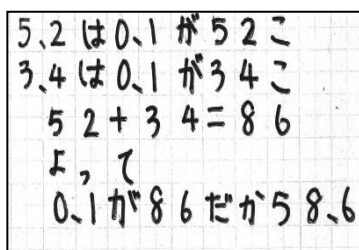 5.2は0.1が52こ
3.4は0.1が34こ
52+34=86
よって
0.1が86だから58.6